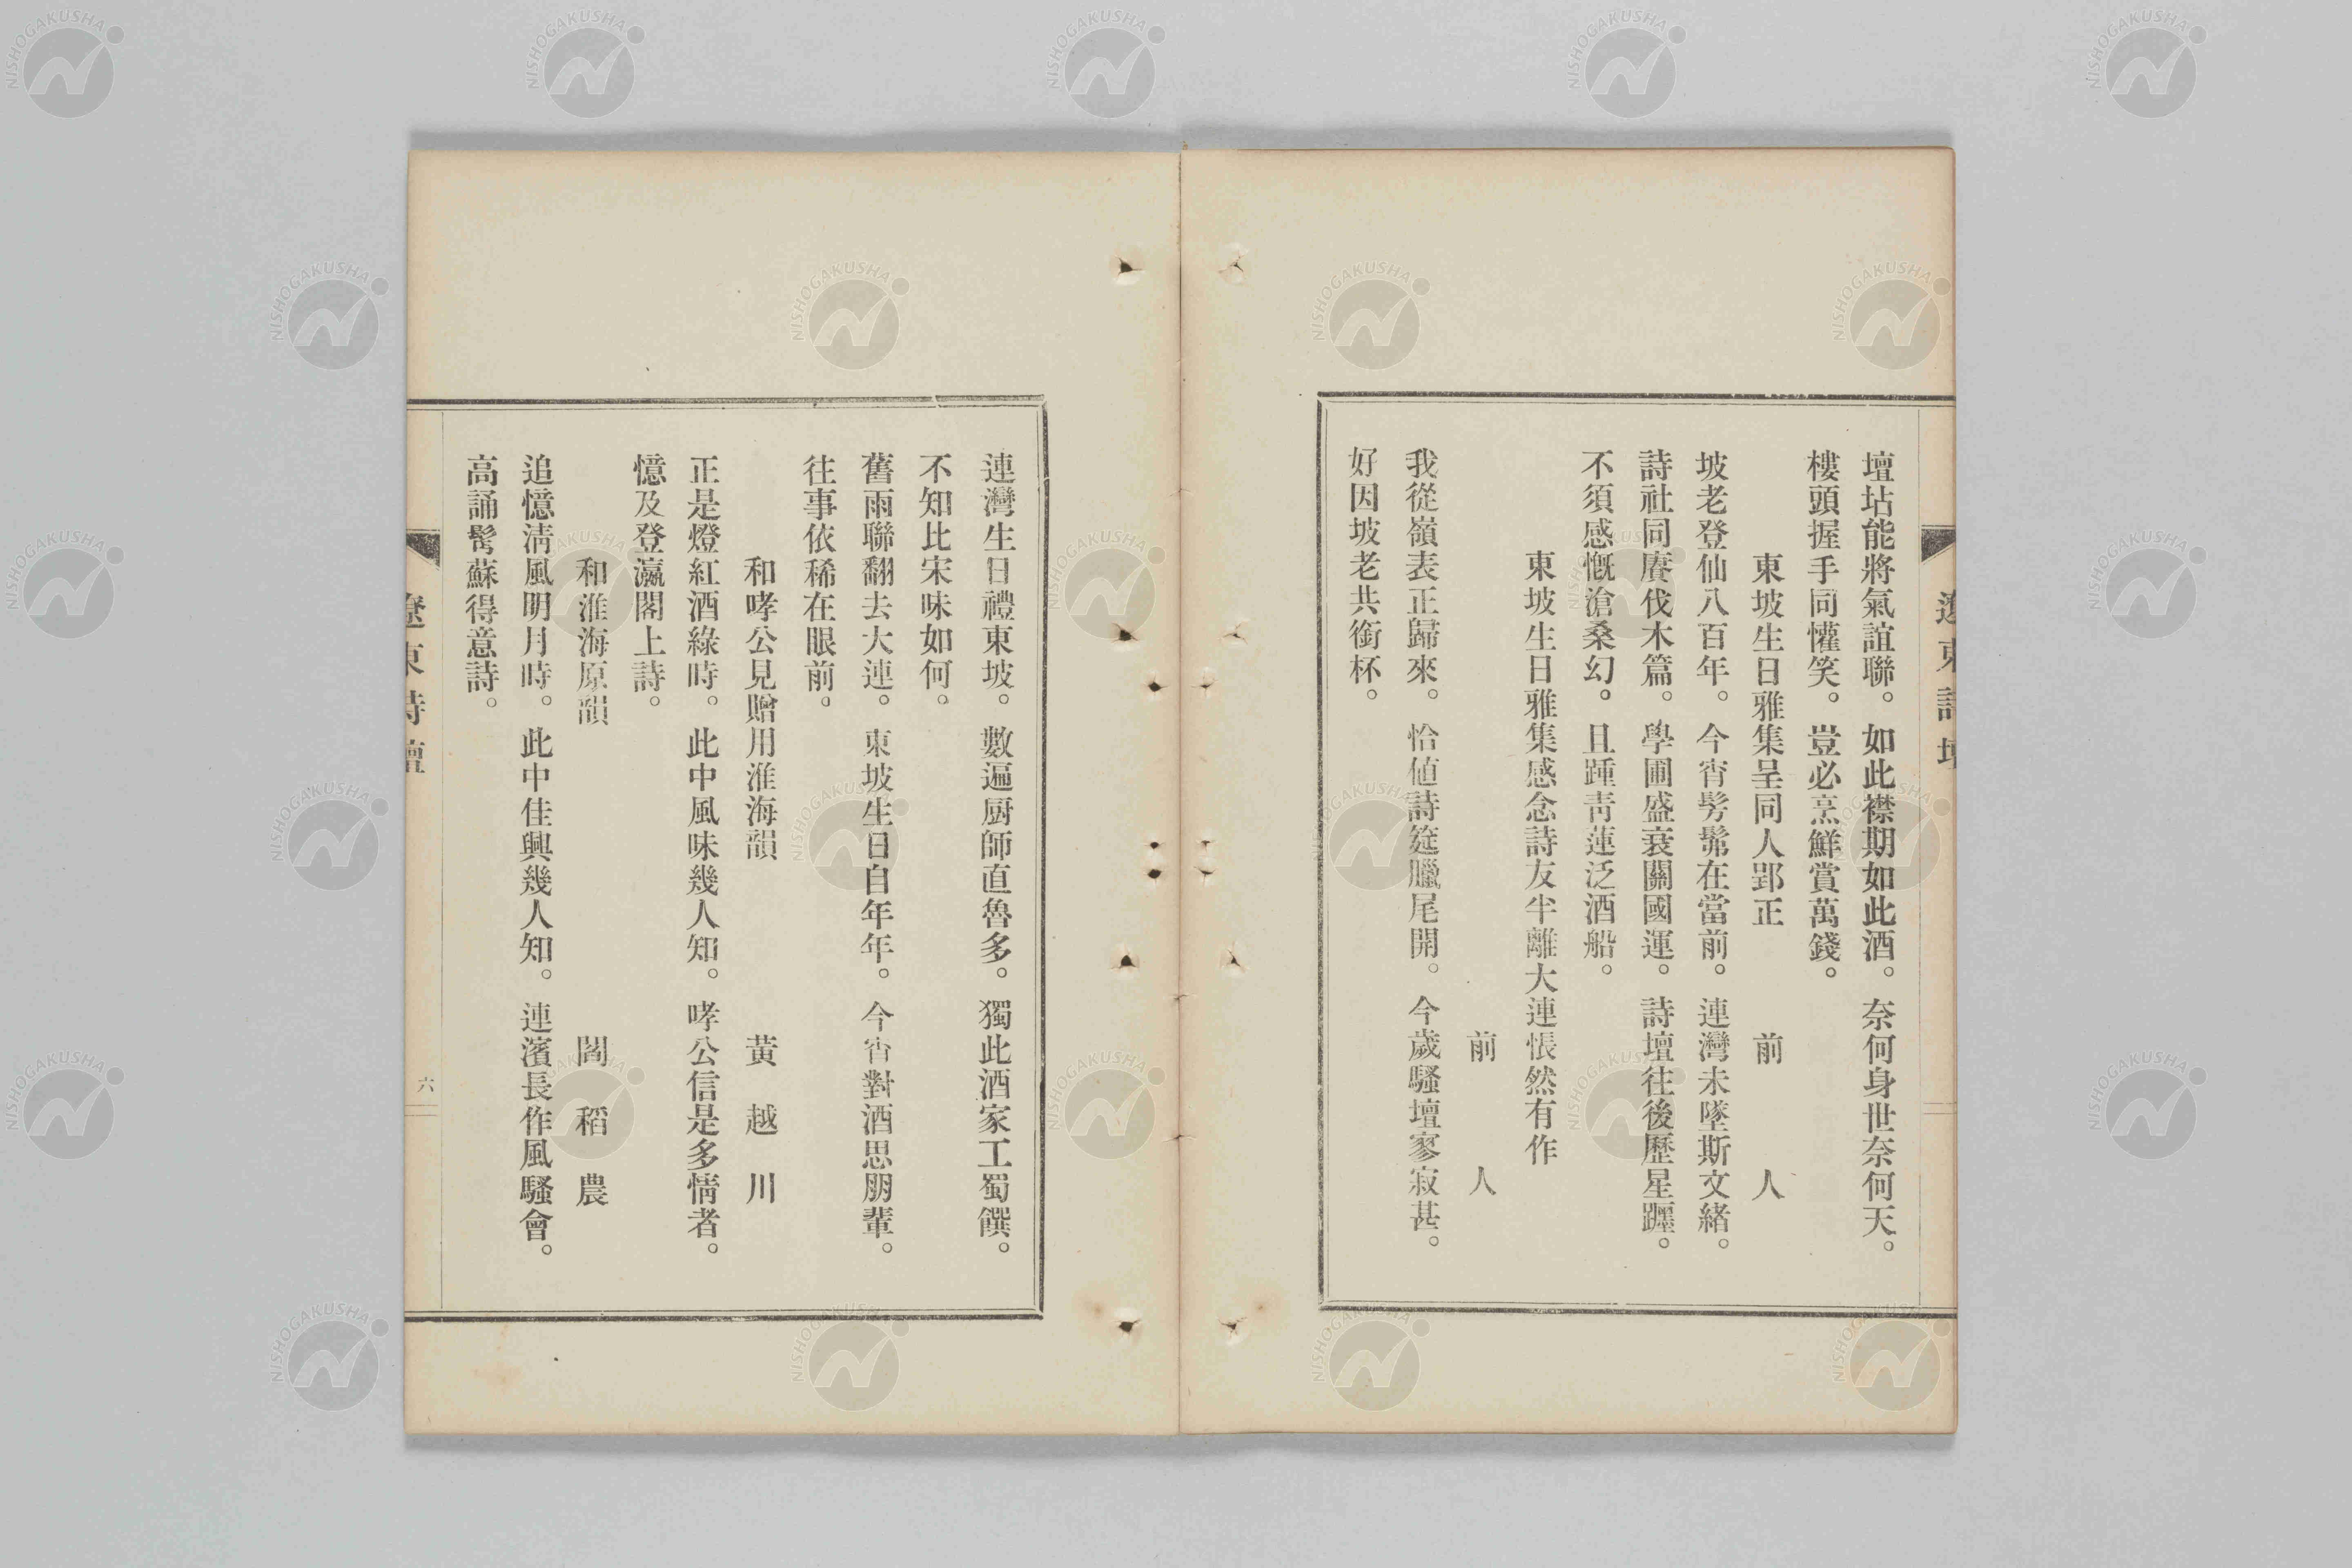 遼東詩壇
壇坫能將氣誼聯。如此襟期如此酒。奈何身世奈何天。
樓頭握手同懽笑。豈必烹鮮賞萬錢。
東坡生日雅集呈同人郢正　前人
坡老登仙八百年。今宵髣髴在當前。連灣未墜斯文緒。
詩社同賡伐木篇。學圃盛衰關國運。詩壇往後歷星躔。
不須感慨滄桑幻。且踵靑蓮泛酒船。
東坡生日雅集感念詩友半離大連悵然有作
前人
我從嶺表正歸來。恰値詩筵臘尾開。今歲騷壇寥寂甚。
好因坡老共銜杯。
連灣生日禮東坡。數遍厨師直魯多。獨此酒家工蜀饌。
不知比宋味如何。
舊雨聯翻去大連。東坡生日自年年。今宵對酒思朋輩。
往事依稀在眼前。
和哮公見贈用淮海韻　黃越川
正是燈紅酒綠時。此中風味幾人知。哮公信是多情者。
憶及登瀛閣上詩。
和淮海原韻　閻稻農
追憶淸風明月時。此中佳興幾人知。連濱長作風騷會。
高誦髯蘇得意詩。
遼東詩壇
六
NISHOGAKUSHA